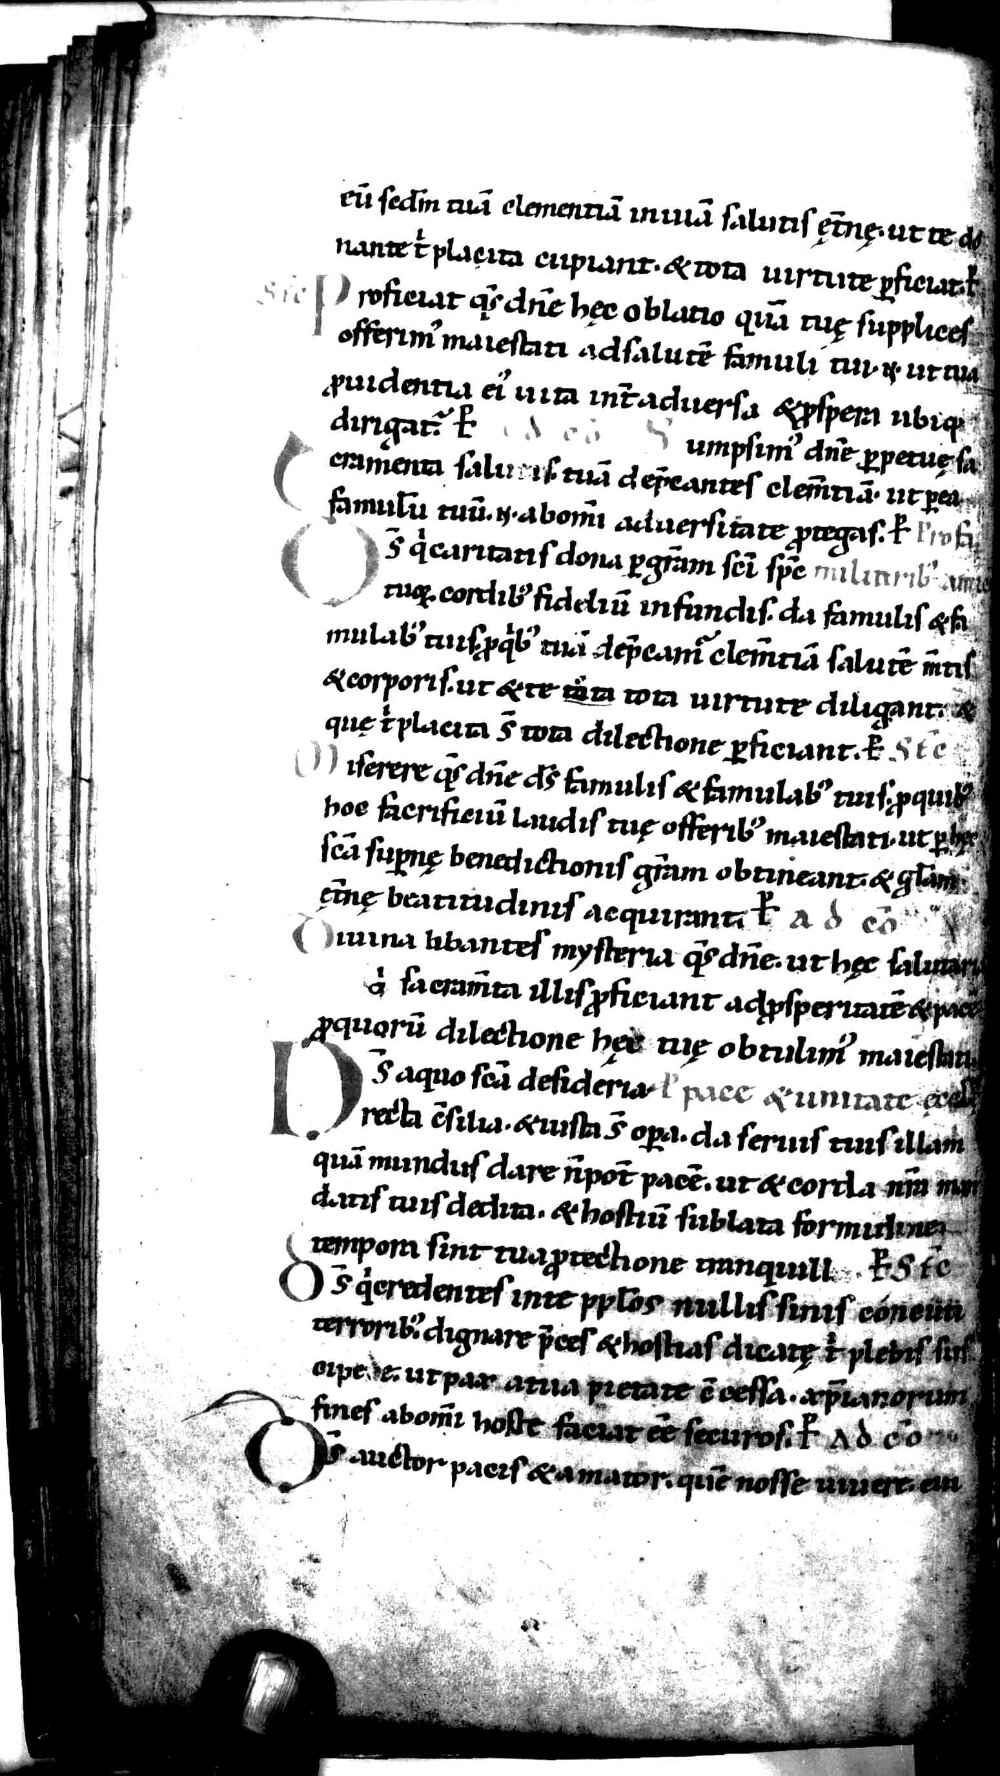 eū scdm̄ tuā clementiā in uiā salutis ęt̄nę. ut te do
nante t' placita cupiant. & tota uirtute p̄ficiat. P̄
Proficiat qs̄ dn̄e hęc oblatio quā tuę supplices
offerim' maiestati ad salutē famuli tui. N. ut tua
puidentia ei' uita int̄ aduersa & pspera ubiq;
dirigat'. P̄ ad cō Sumpsim' dn̄e ppetuę sa
cramenta salutis. tuā dep̄cantes clem̄tiā. ut p ea
famulū tuū. N. ab om̄i aduersitate ptegas. P̄ Pro fa
Ds̄ q' caritatis dona p gr̄am sc̄i sp̄c miliarib' amic
tuoꝝ. cordib' fideliū infundis. da famulis & fa
mulab' tuis, p q'b' tuā dep̄cam' clem̄tiā salutē m̄tis
& corporis. ut & te tota uirtute diligant. &
quę t' placita s̄ tota dilectione pficiant. P̄ Sec̄
Miserere qs̄ dn̄e ds̄ famulis & famulab' tuis, p quib'
hoc sacrificiū laudis tuę offerib' maiestati. ut p hęc
sc̄a supnę benedictionis gr̄am obtineant. & gl̄am
ęt̄nę beatitudinis acquirant. P̄ ad cō
Diuina libantes mysteria qs̄ dn̄e. ut hęc salutaria
sacram̄ta illis pficiant ad psperitatē & pacē
p quorū dilectione hęc tuę obtulim' maiestati.
Ds̄ a quo sc̄a desideria P̄ pace & unitate ęccl̄
recta c̄silia. & iusta s̄ opa. da seruis tuis illam
quā mundus dare n̄ pot̄ pacē. ut & corda nr̄a man
datis tuis dedita. & hostiū sublata formidine
tempora sint tua ptectione tranquill P̄ Sec̄
Ds̄ q' credentes in te ppl̄os nullis sinis concuti
terrorib'. dignare p̄ces & hostias dicatę t' plebis sus
cipere. ut pax a tua pietate c̄cessa. xp̄ianorum
fines ab om̄i hoste faciat eē securos. P̄ ad cō
Ds̄ auctor pacis & amator. quē nosse uiuere. cui